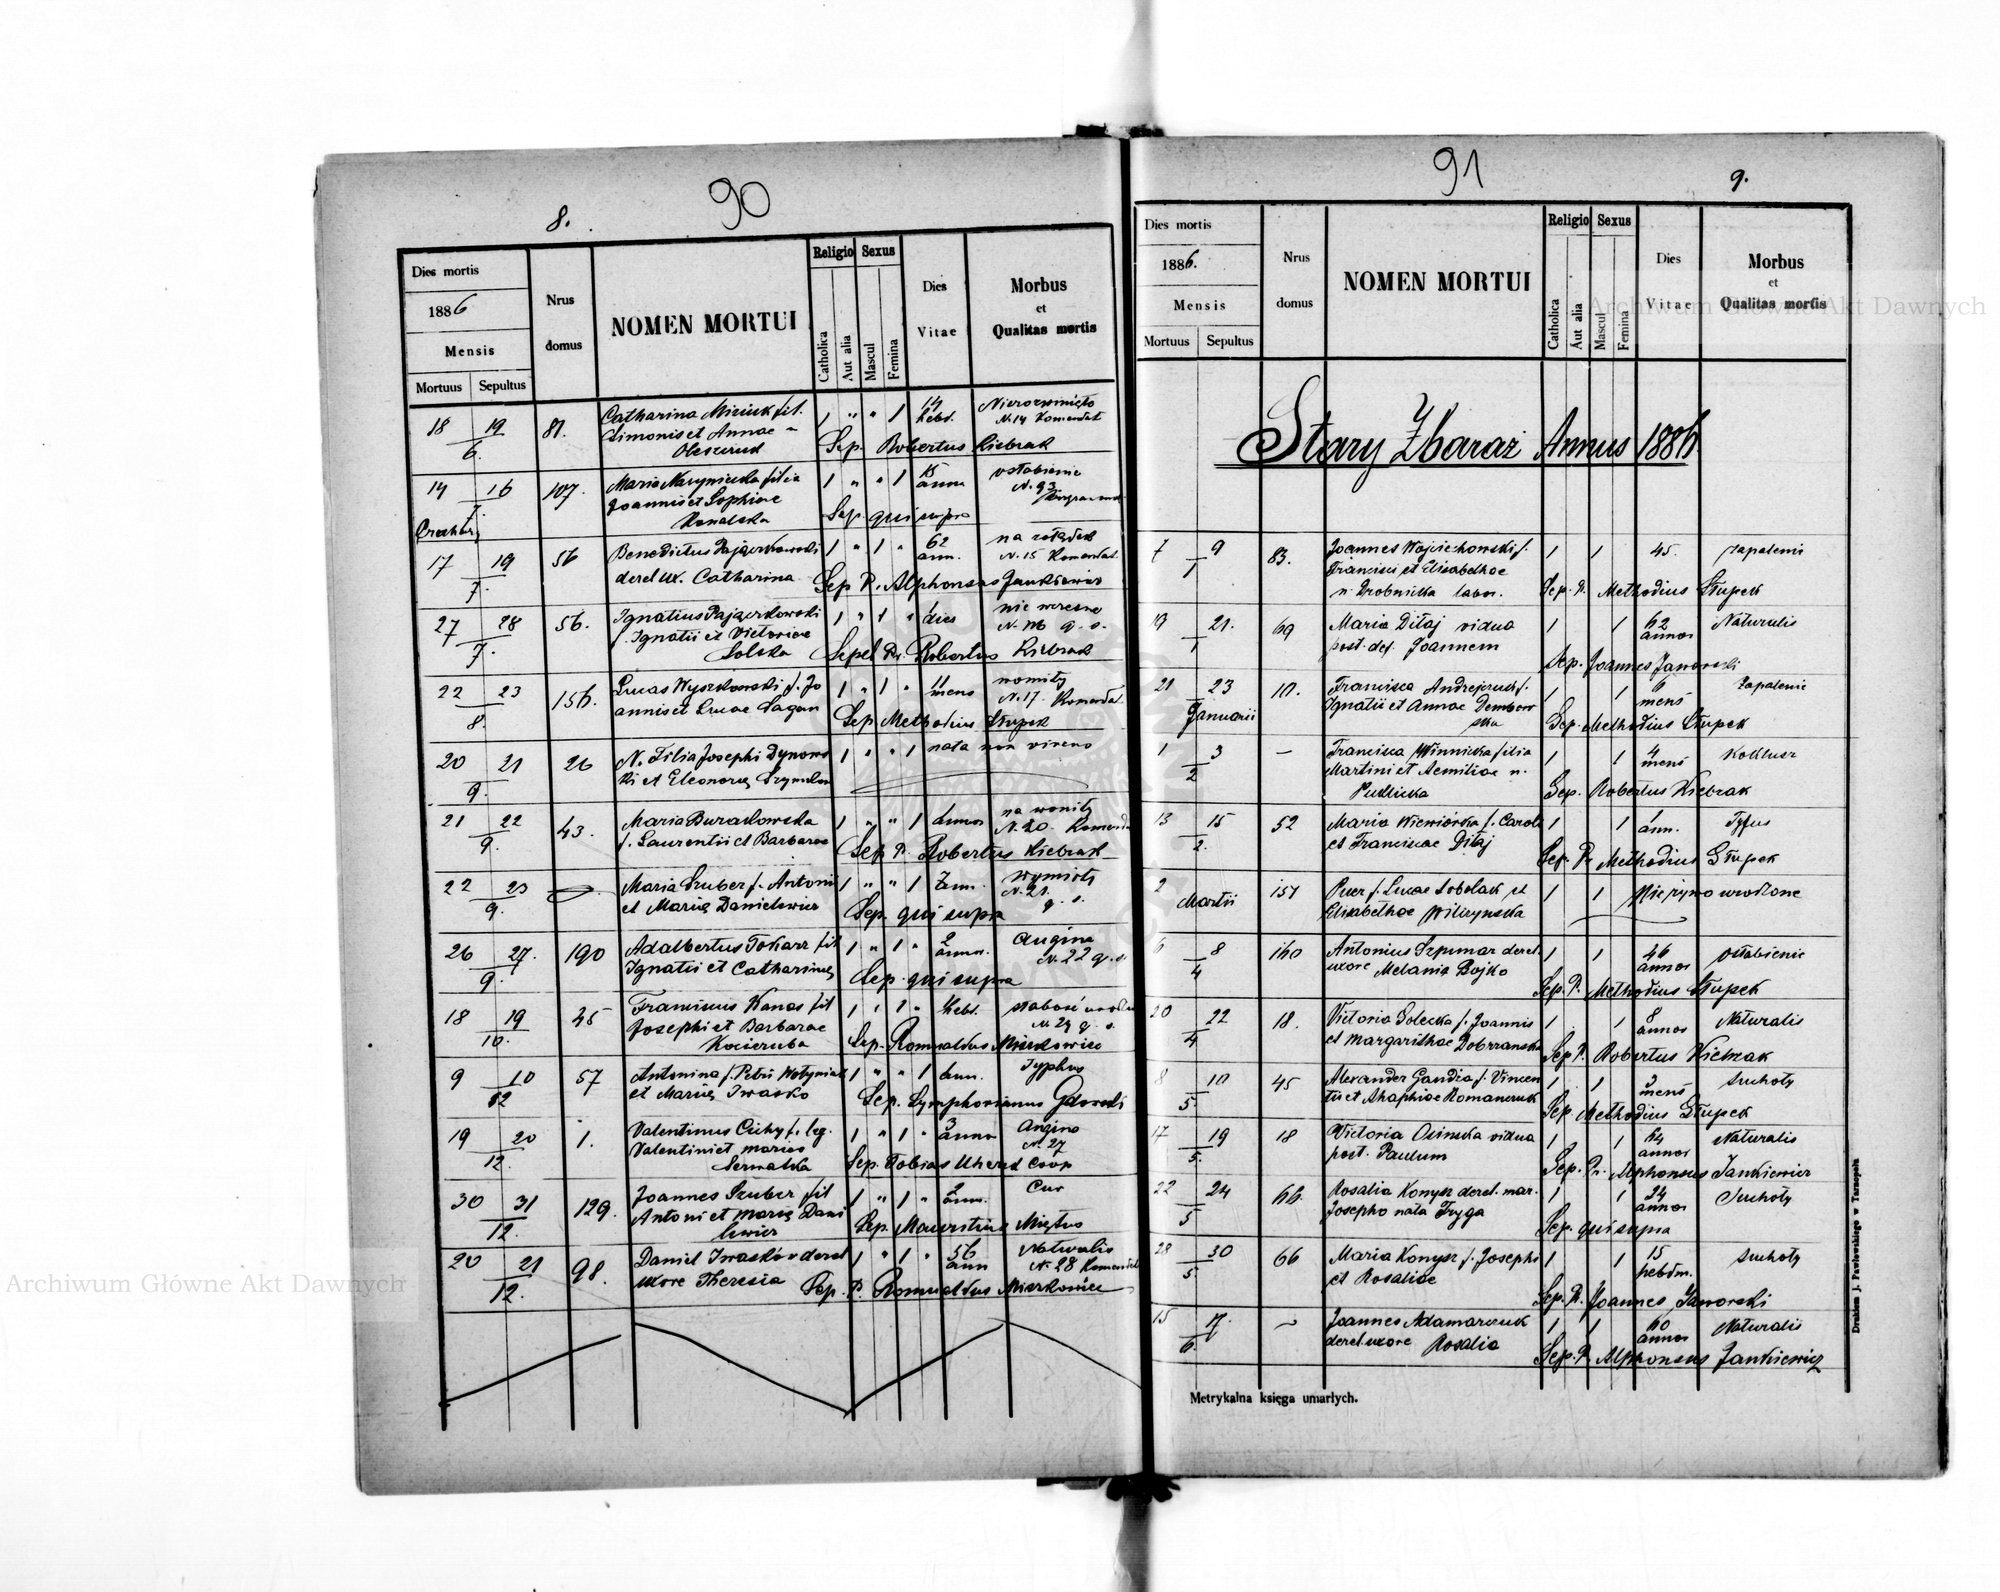 90
8.
Dies mortis
1886
Mensis
Mortuus Sepultus
Nrus
domus
NOMEN MORTUI
Religio
Catholica
Aut alia
Sexus
Mascul
Femina
Dies
Vitae
Morbus
et
Qualitas mortis
18 19 81. Catharina fil. 1 " " 1 14
6. Simonis et Annae hebd. N. 14 Komendat
Sep. Robertus Kiebzak
14 16 107. Maria filia 1 " " 1 15 osłabienie
7. Joannis et Sophiae anna N. 93
Sep. qui supra
17 19 56 Benedictus Pajączkowski 1 " 1 " 62 na żołądek
7. derel. ux. Catharina ann. N. 15 Komendat
Sep. P. Alphonsus Jankiewicz
27 28 56. Ignatius Pajączkowski 1 " 1 " dies nie wczesne
7. f. Ignatii et Victoriae N. 16 q. s.
Solska Sepel. P. Robertus Kiebzak
22 23 156. Lucas Wyszkowski f. Jo 1 " 1 " 11 womity
8. annis et Lucae Pagan mens N. 17. Komendat
Sep. Methodius Słupek
20 21 26 N. Filia Josephi Dynows 1 " " 1 nata non vivens
9. ki et Eleonorę
21 22 43. Maria Burakowska 1 " " 1 annos na womity
9. f. Laurentii et Barbarae N. 20.
Sep. P. Robertus Kiebzak
22 23 Maria Szuber f. Antonii 1 " " 1 ann. Wymioty
9. et Marię Danielewicz N. 21.
q. s.
Sep. qui supra
26 27. 190 Adalbertus Tokarz fil 1 " 1 " 2 Angina
9. Ignatii et Catharinę annos. N. 22 q. s.
Sep. qui supra
18 19 45 Franciscus Kanas fil 1 " 1 " hebd. słabość
10. Josephi et Barbarae N. 24 q. s.
Kocieruba Sep. Romualdus Mierkowicz
9 10 57 Antonina f. Petri Wołyniak 1 " " 1 ann. Typhus
12 et Marię Iwasko
Sep. Symphorianus Gdowski
19 20 1. Valentinus Cichy f. leg. 1 " 1 " 3 Angina
12. Valentini et Marias anna N. 27
Sernatka Sep. Tobias Uherek Coop
30 31 129. Joannes Szuber fil 1 " 1 " 2
12. Antoni et Marię Dani ann.
lewicz Sep. Mauritius Miętus
20 21 98. Daniel Iwaśków derel 1 " 1 " 56 Naturalis
12. uxore Theresia ann N. 28 Komendat
Sep. P. Romualdus Mierkowicz
91
9.
Dies mortis
1886.
Mensis
Mortuus Sepultus
Nrus
domus
NOMEN MORTUI
Religio
Catholica
Aut alia
Sexus
Mascul
Femina
Dies
Vitae
Morbus
et
Qualitas mortis
Stary Zbaraż Annus 1886.
7 9 83. Joannes Wojciechowski f. 1 1 45. zapaleni
1 Francisci et Elisabethae
n. Drobnicka labor. Sep. P. Methodius Słupek
19 21. 69 Maria Ditaj vidua 1 1 62 Naturalis
1 post. def. Joannem annos
Sep. Joannes Janowski
21 23 10. Francisca Andrejczuk f. 1 1 6 Zapalenie
Januarii Ignatii et Annae Dembow mens
ska Sep. Methodius Słupek
1 3 — Francisca Winnicka filia 1 1 4 Koklusz
2 Martini et Aemiliae n. mens
Pudlicka Sep. Robertus Kiebzak
13 15 52 Maria Wiewiórka f. Caroli 1 1 1 Tyfus
2. et Franciscae Ditaj ann.
Sep. P. Methodius Słupek
2 Martii 151 Puer f. Lucae Sobolak et 1 1 Nieżywo urodzone
Elisabethae Wilczynska
6 8 160 Antonius Szpunar derel. 1 1 46 osłabienie
4 uxore Melania Bojko annos
Sep. P. Methodius Słupek
20 22 18. Victoria Golecka f. Joannis 1 1 8 Naturalis
4 et Margarithae Dobrzanska annos
Sep. P. Robertus Kiebzak
8 10 45 Alexander Gandza f. Vincen 1 1 3 suchoty
5. tii et Ahaphiae Romanczuk mens
Sep. Methodius Słupek
17 19 18 Victoria Osinska vidua 1 1 64 Naturalis
5. post. Paulum annos
Sep. Pr. Alphonsus Jankiewicz
22 24 66. Rosalia Konysz derel. mar. 1 1 34 Suchoty
5 Josepho nata Fryga annos
Sep. qui supra
28 30 66 Maria Konysz f. Josephi 1 1 15 suchoty
5. et Rosaliae hebdm.
Sep. P. Joannes Jaworski
15 17. ~ Joannes Adamarczuk 1 1 60 Naturalis
6. derel. uxore Rosalia annos
Sep. P. Alphonsus Jankiewicz
Metrykalna księga umarłych.
Drukiem J. Pawłowskiego w Tarnopolu
Archiwum Główne Akt Dawnych
Archiwum Główne Akt Dawnych